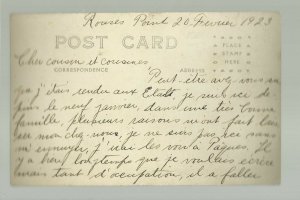 Rouses Point 20 Fevrier 1923
POST CARD
Cher cousin et cousines
CORRESPONDENCE
ADDRESS
PLACE
STAMP
HERE
Peut-être avez vous su
que j'étais rendu aux États, je suis ici de-
puis le neuf janvier, dans une très bonne
famille, plusieurs raisons m'ont fait lais-
ser mon chez-nous, je ne suis pas ici sans
m'ennuyer, j'irai les voir à Pâques. Il
y a bien longtemps que je voulais écrire
mais tant d'occupation, il a fallu